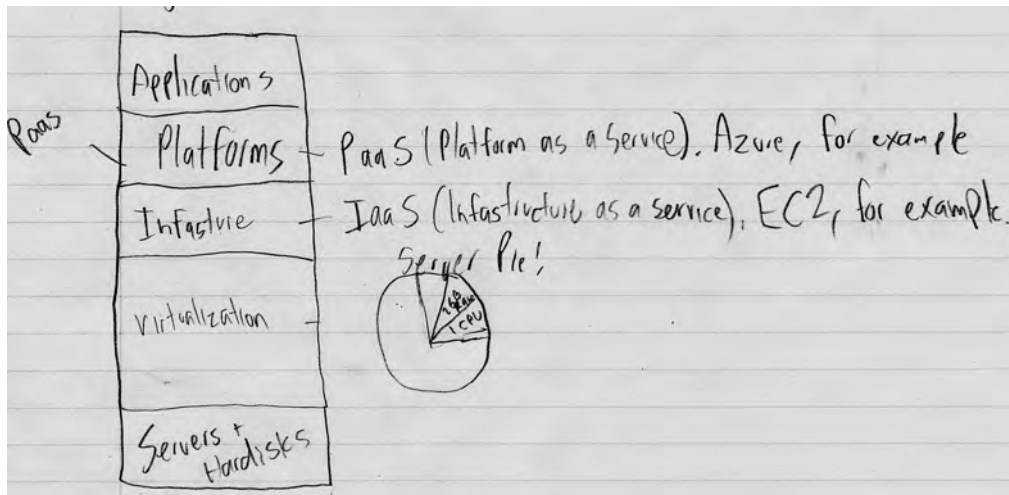 Applications
Paas
Platforms - PaaS (Platform as a Service). Azure, for example
Infasture - IaaS (Infastructure as a service). EC2, for example.
Server Pie!
2GB
RAM
1 CPU
Virtualization -
Servers +
Hardisks